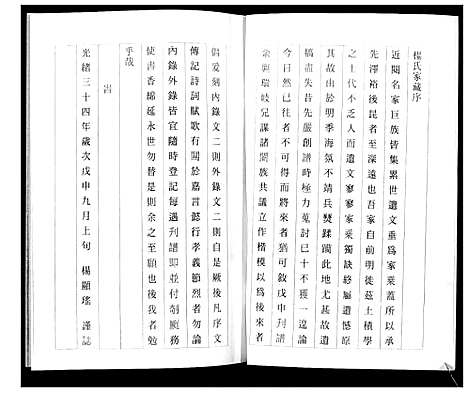 楊氏家藏序
近閱名家巨族皆集累世遺文垂爲家乘蓋所以承
先澤裕後昆者至深遠也吾家自前明徒茲土積學
之士代不乏人而遺文寥寥家乘獨缺終屬遺憾原
其故由於明季海氛不靖兵燹蹂躪此地尤甚故遺
稿盡失昔先嚴創譜時極力蒐討已十不獲一遑論
今日然已往者不可得而將來者猶可敘戊申刋譜
余與瑞岐兄謀諸闔族共議立作楷模以爲後來者
倡爰刻內錄文二則外錄文二則自是厥後凡序文
傳記詩詞賦歌有關於嘉言懿行孝義節烈者勿論
內錄外錄皆宜隨時登記每遇刋譜即並付剞劂務
使書香綿延永世勿替是則余之至願也後我者勉
乎哉
旹
光緒三十四年歲次戊申九月上旬 楊顯瑤 謹誌